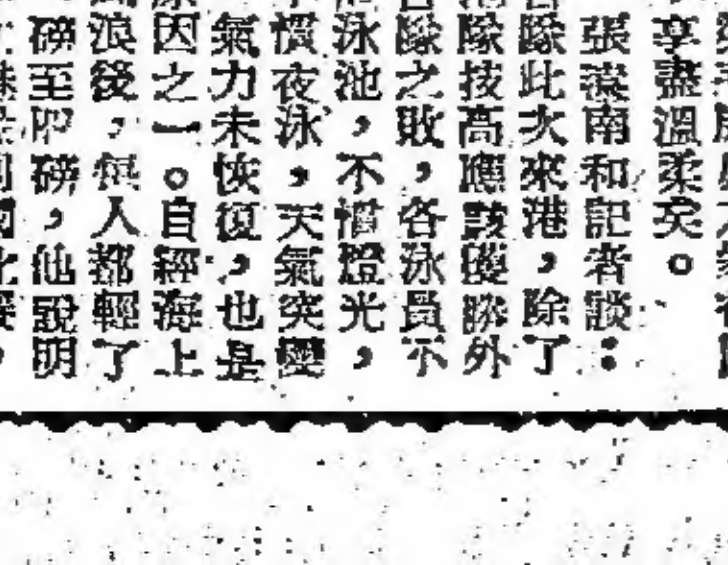 享盡溫柔矣。
張滾南和記者談：
隊此次來港，除了
隊技高應該獲勝外
隊之敗，各泳員不
泳池，不慣燈光，
慣夜泳，天氣突變
氣力未恢復，也是
因之一。自經海上
浪後，個人都輕了
磅至 磅，他說明